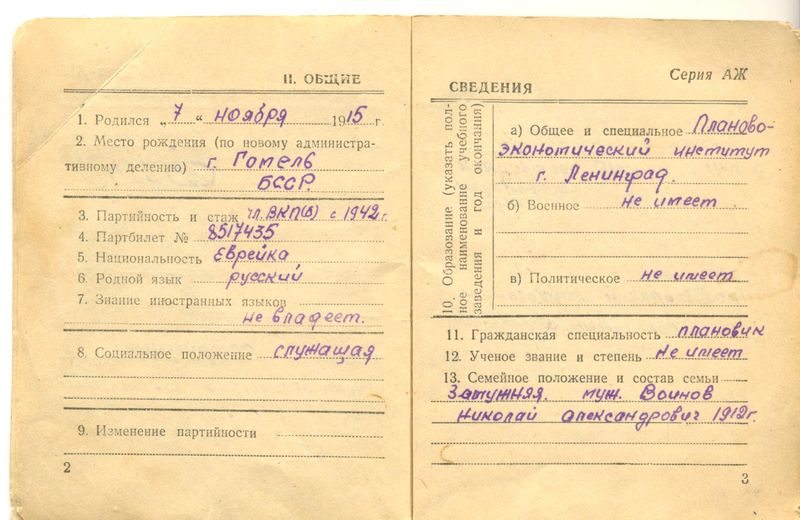 II. ОБЩИЕ
1. Родился „ 7 “ ноября 1915 г.
2. Место рождения (по новому администра-
тивному делению) г. Гомель
БССР.
3. Партийность и стаж чл. ВКП(б) с 1942 г.
4. Партбилет № 8517435
5. Национальность Еврейка
6. Родной язык русский
7. Знание иностранных языков
не владеет.
8. Социальное положение служащая
9. Изменение партийности
2
Серия АЖ
СВЕДЕНИЯ
10. Образование (указать пол-
ное наименование учебного
заведения и год окончания)
а) Общее и специальное Планово-
экономический институт
г. Ленинград.
б) Военное не имеет
в) Политическое не имеет
11. Гражданская специальность плановик
12. Ученое звание и степень не имеет
13. Семейное положение и состав семьи
Замужняя. муж. Воинов
Николай Александрович 1912 г.
3